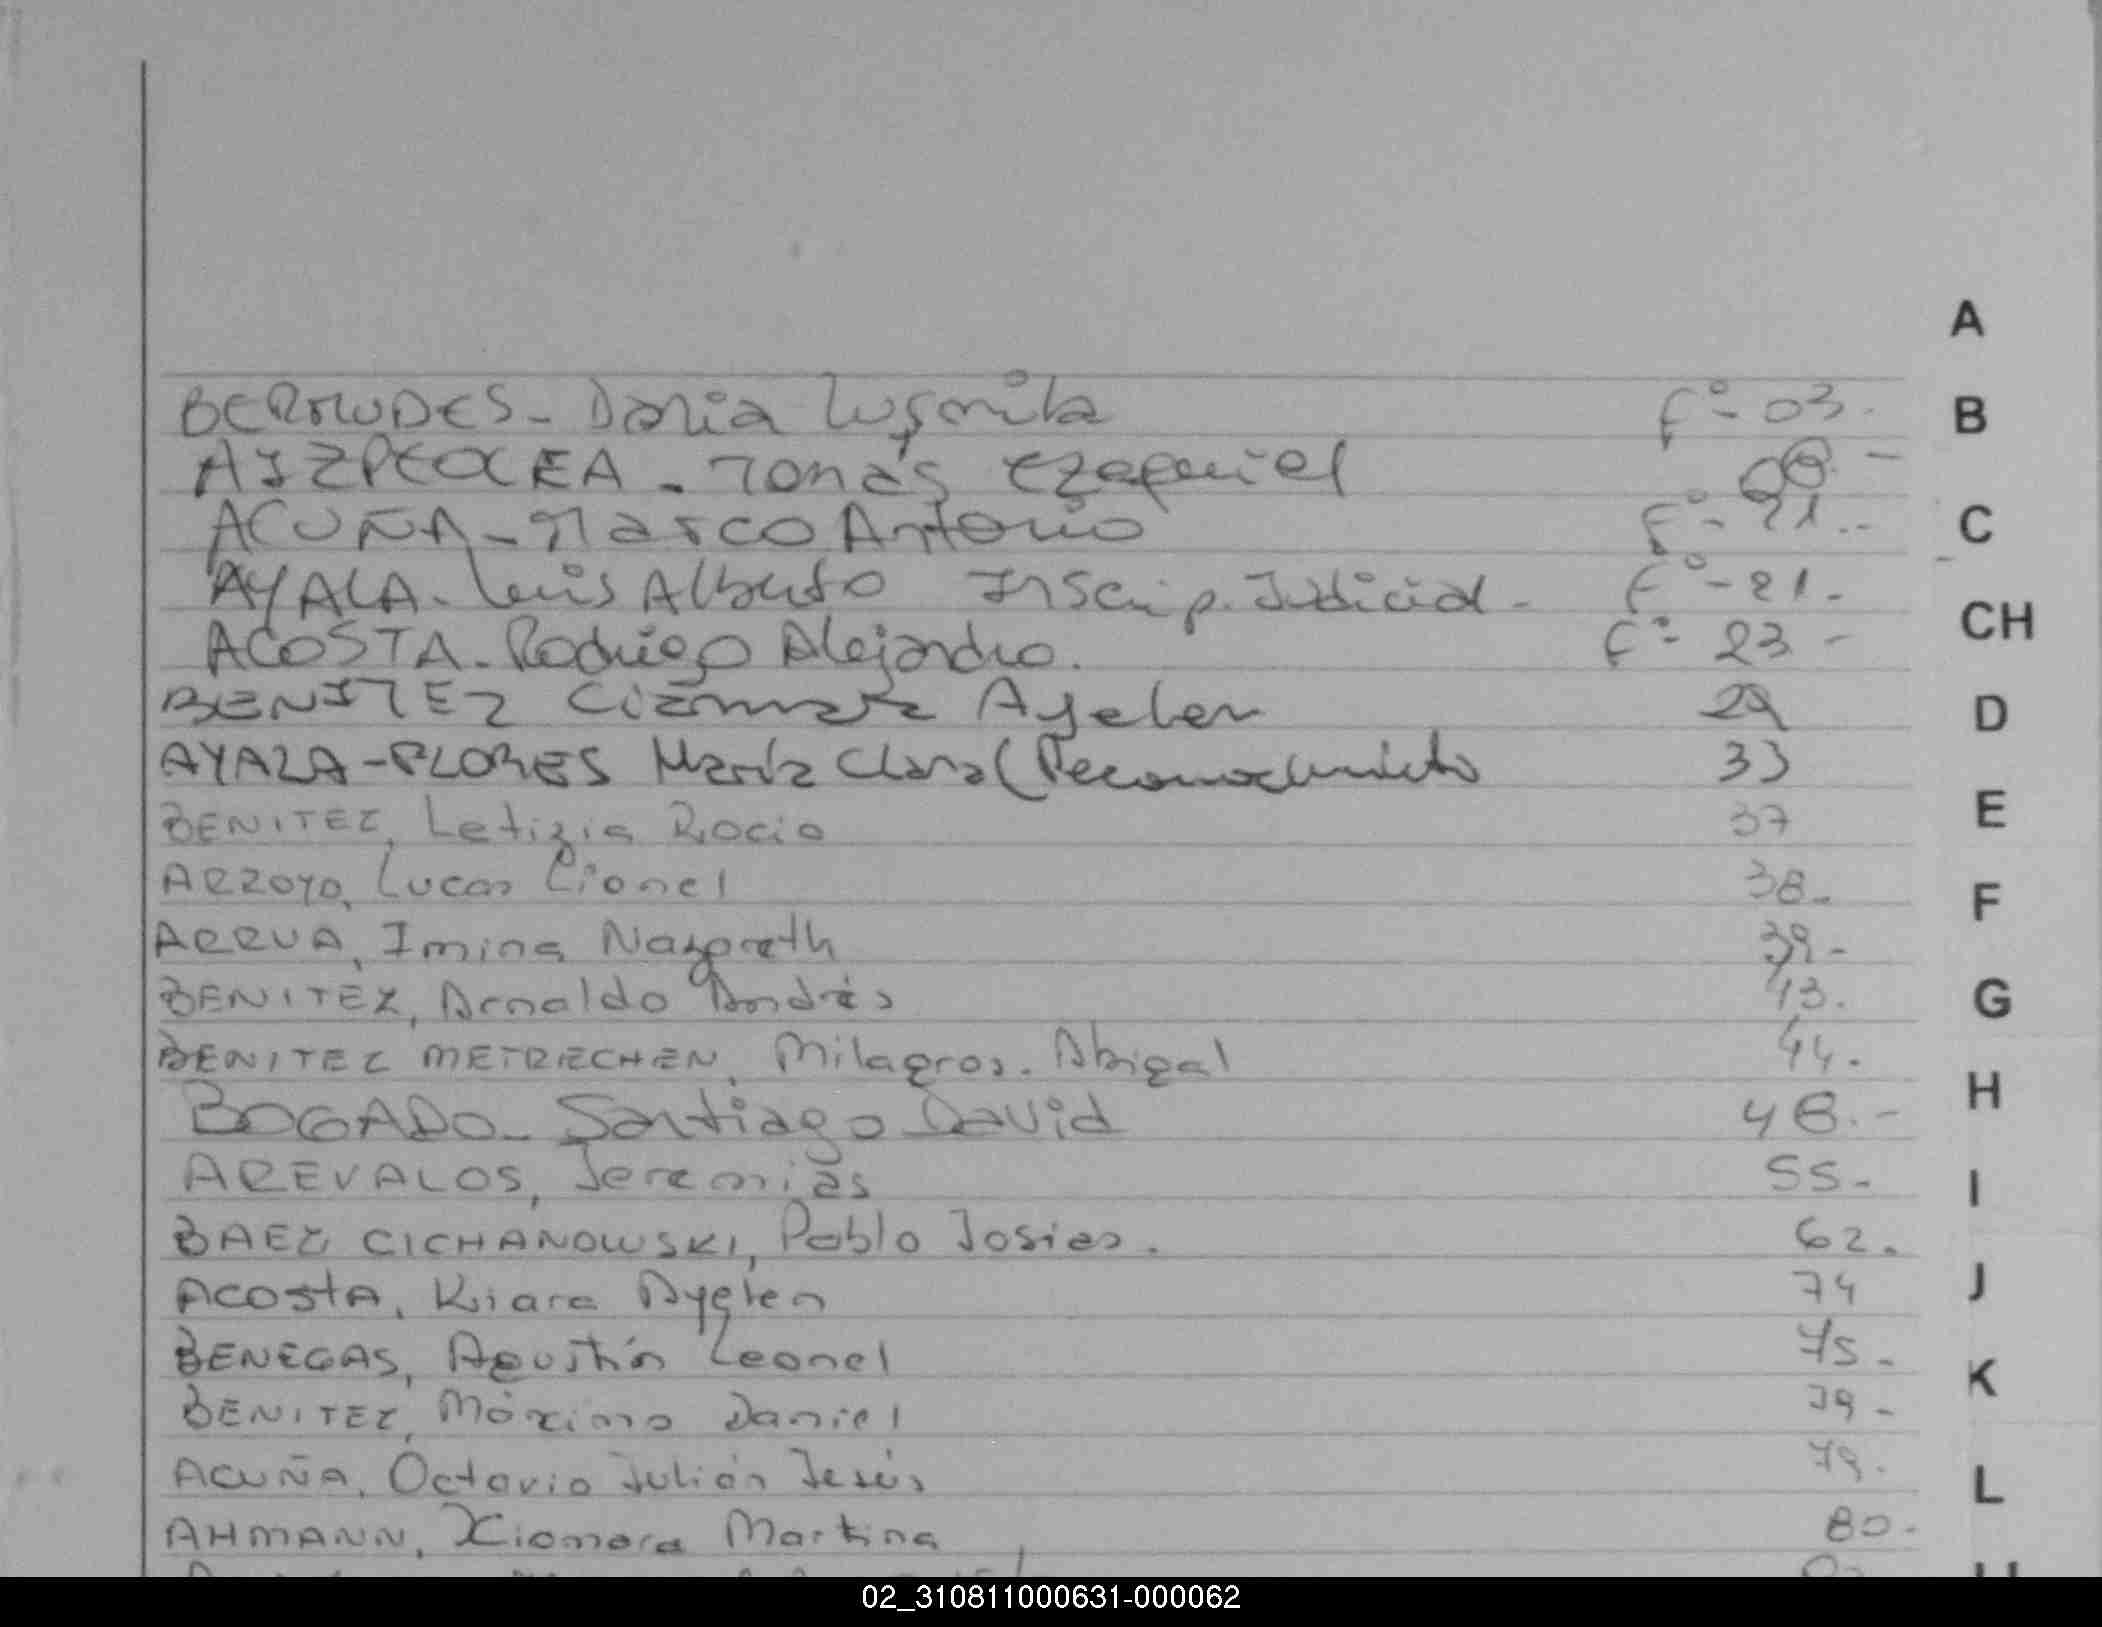 BERMUDES - Daria Luzmila F°- 03.
AIZPEOLEA - Tomás Ezequiel 08. -
ACUÑA - Marco Antonio F°- 21..
AYALA - Luis Alberto Inscrip. Judicial - F°- 21.
ACOSTA - Rodrigo Alejandro. F°- 23 -
BENITEZ Ayelen 29
AYALA - FLORES María Clara (Reconocimiento 33
BENITEZ, Letizia Rocio 37
ARROYO, Lucas Lionel 38.
ARRUA, Imina Nazareth 39 -
BENITEZ, Arnaldo Andrés 43.
BENITEZ METRECHEN, Milagros. Abigal 44.
BOGADO - Santiago David 48. -
AREVALOS, Jeremías 55 -
BAEZ CICHANOWSKI, Pablo Josias. 62.
ACOSTA, Kiara Ayelen 74
BENEGAS, Agustín Leonel 75 -
BENITEZ, Máximo Daniel 79 -
ACUÑA, Octavio Julián Jesús 79.
AHMANN, Xiomara Martina 80 -
A
B
C
CH
D
E
F
G
H
I
J
K
L
02_310811000631-000062